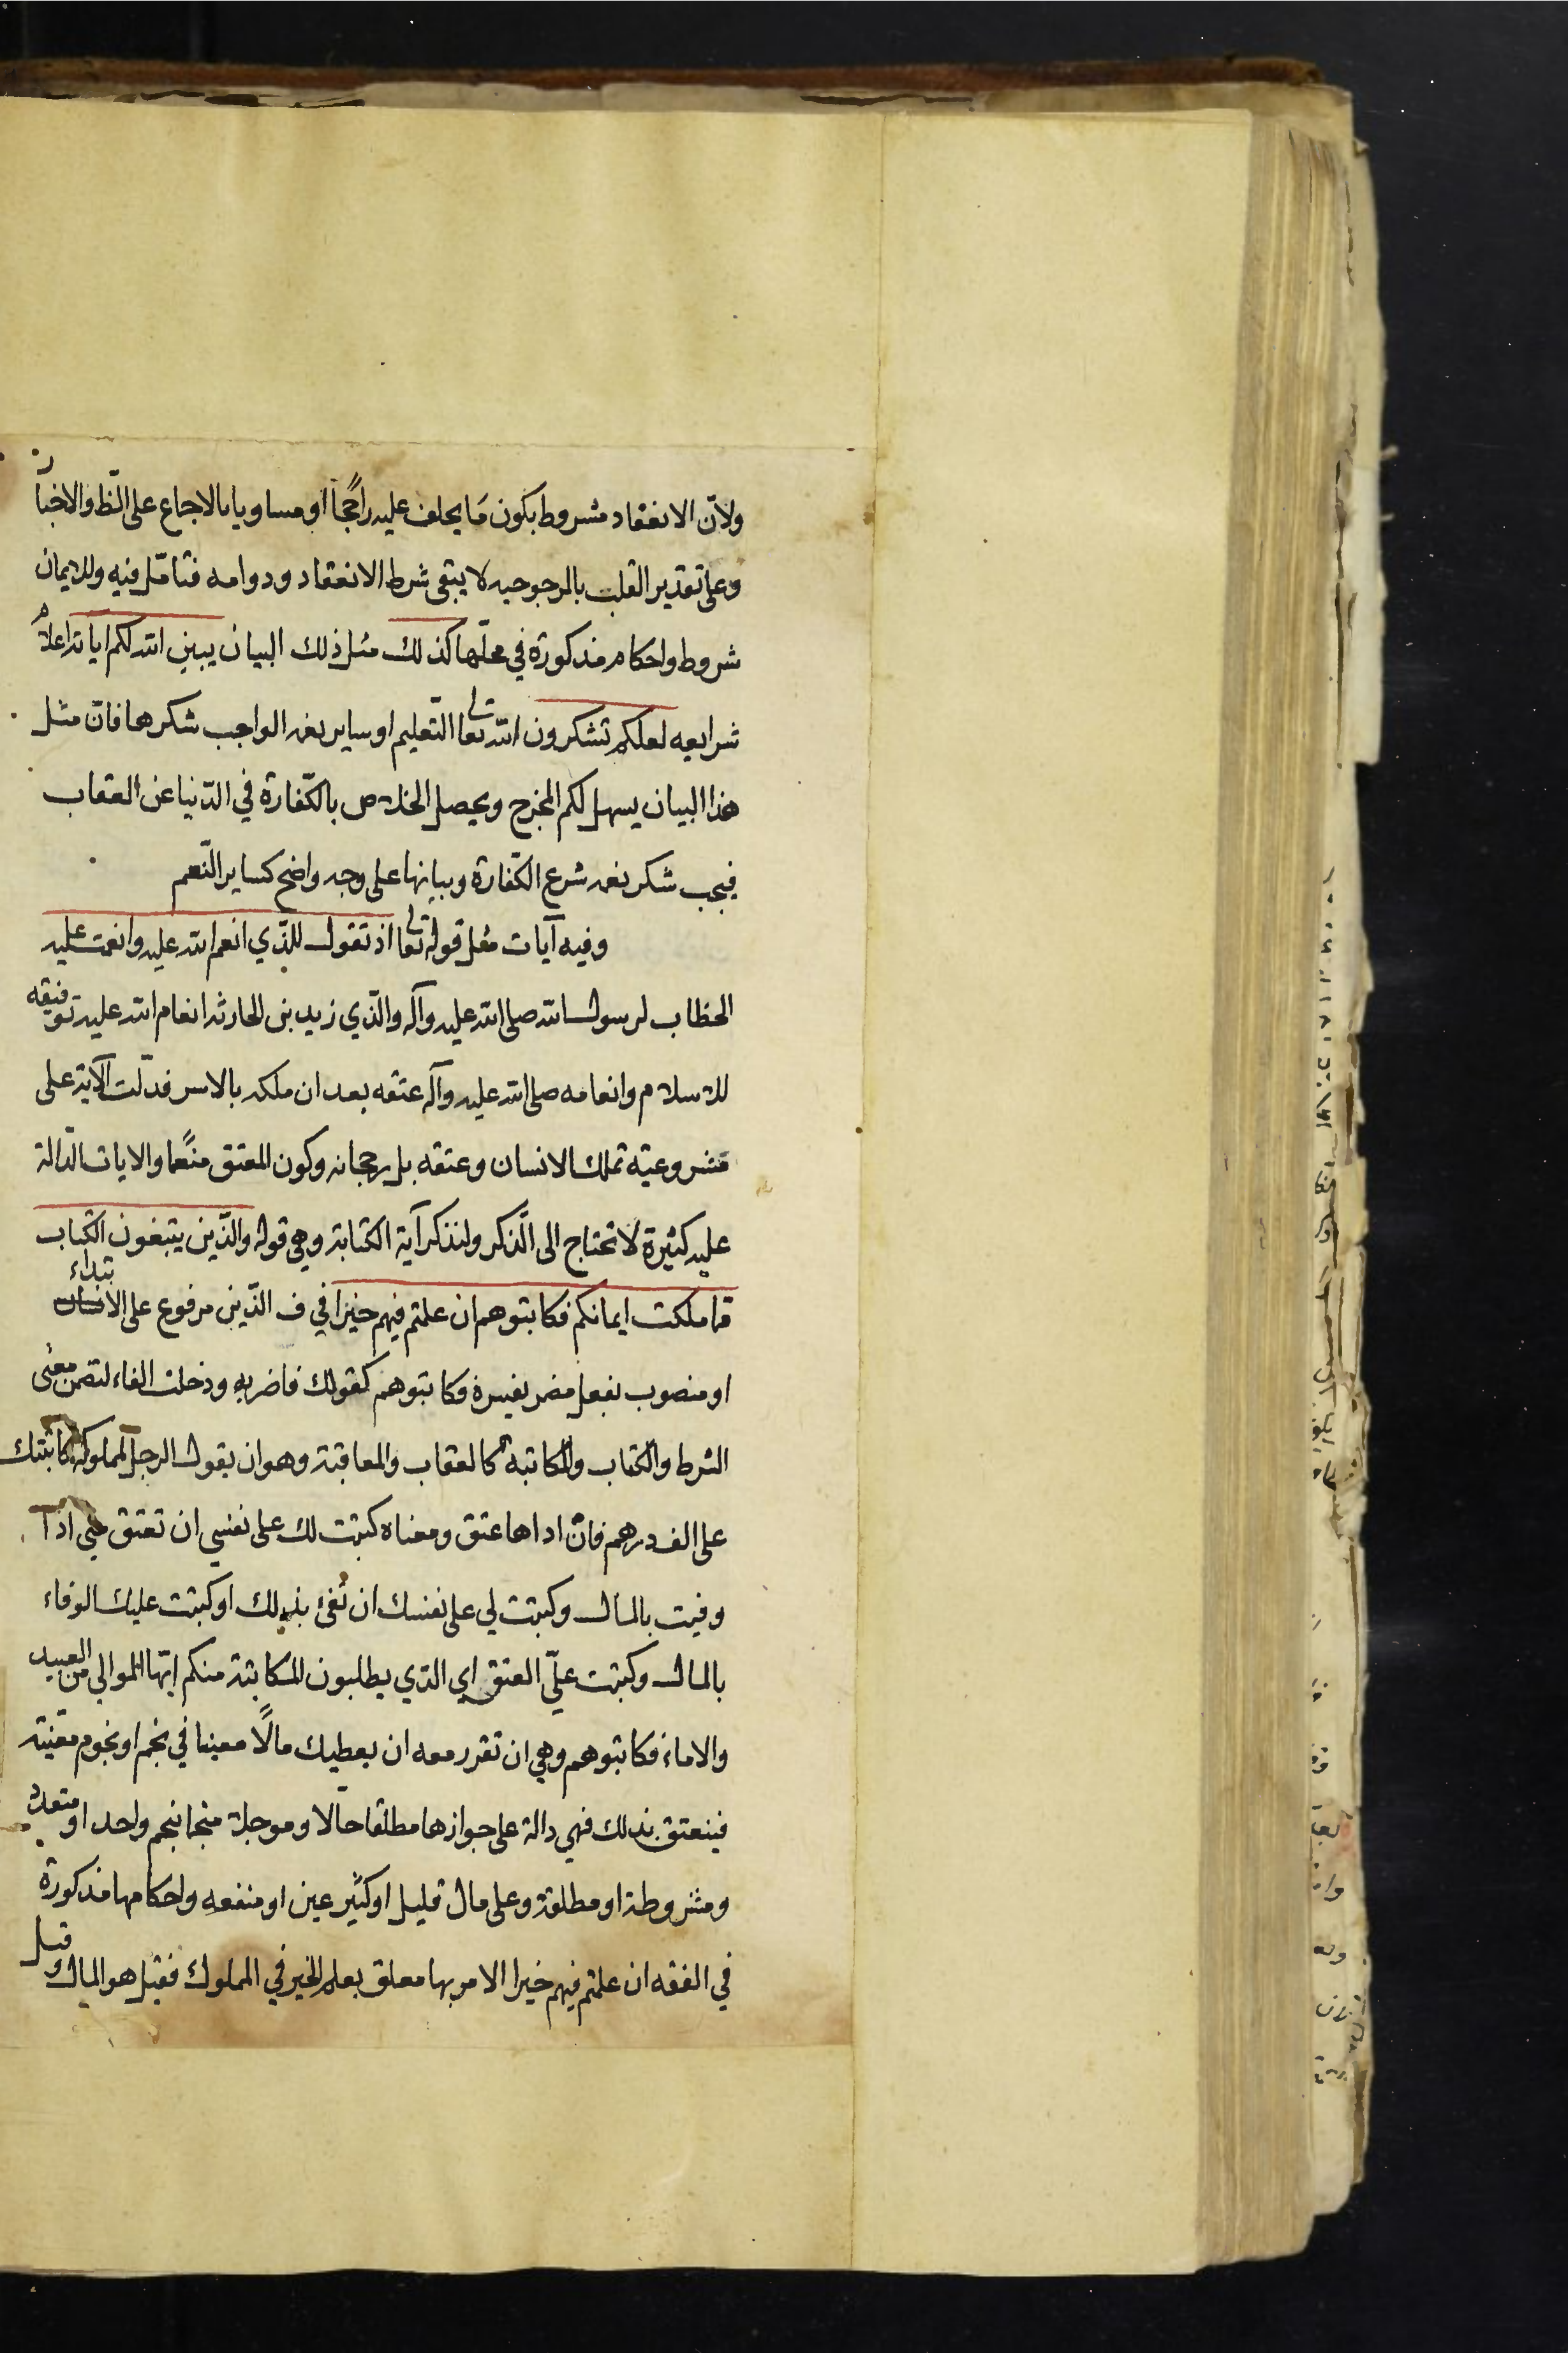 ولانّ الانعقاد مشروط بكون مَا يحلف عليه راجحًا او مساويا بالاجماع على الظ والاخبار
وعلى تقدير القلب بالمرجوحيه لا يبقى شرط الانعقاد ودوامه فتامّل فيه وللايمان
شروط واحكام مذكورة في محلّها كذلك مثل ذلك البيان يبين الله لكم اياته اعلام
شرايعه لعلكم تشكرون الله تعالى التّعليم او ساير نعمه الواجب شكرها فان مثل
هذا البيان يسهل لكم المخرج ويحصل الخلاص بالكّفارة في الدّنيا عن العقاب
فيجب شكر نعمه شرع الكّفارة وبيانها على وجه واضح كساير النّعم
وفيه آيات مثل قوله تعالى اذ تقول للّذي انعم الله عليه وانعمت عليه
الخطاب لرسول الله صلى الله عليه وآله والّذي زيد بن الحارثه انعام الله عليه توفيقه
للاسلام وانعامه صلى الله عليه وآله عتقه بعد ان ملكه بالاسر فدلّت الآية على
مشروعيّه تملك الانسان وعتقه بل رجحانه وكون المعتق منعًما والايات الدّالة
عليه كثيرة لا تحتاج الى الّذكر ولنذكر آية الكتابة وهي قوله والّذين يبتغون الكتاب
مما ملكت ايمانكم فكاتبوهم ان علمتم فيهم خيرا في ف الذّين مرفوع على الابتداء
او منصوب بفعل مضمر يفسره فكاتبوهم كقولك فاضربه ودخلت الفاء لتضمن معنى
الشرط والكتاب والمكاتبة كالعقاب والمعاقبة وهو ان يقول الرجل لمملوكه كاتبتك
على الف درهم فان اداها عتق ومعناه كتبت لك على نفسي ان تعتق مني اذا
وفيت بالمال وكتبت لي على نفسك ان تفئ بذلك او كتبت عليك الوفاء
بالمال وكتبت عليّ العتق اي الذي يطلبون المكاتبة منكم ايّها الموالي من العبيد
والاماء فكاتبوهم وهي ان تقرر معه ان يعطيك مالًا معينا في نجم او نجوم معّينة
فينعتق بذلك فهي دالة على جوازها مطلقا حالّا وموجلة منجما بنجم واحد او متعدد
ومشروطة او مطلقة وعلى مال قليل او كثير عين او منفعه واحكامها مذكورة
في الفقه ان علمتم فيهم خيرا الامر بها معلق بعلم الخير في المملوك فقيل هو المال وقيل